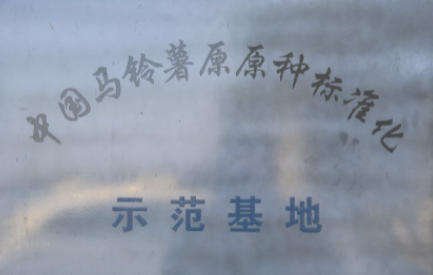 中国马铃薯原原种标准化
示范基地